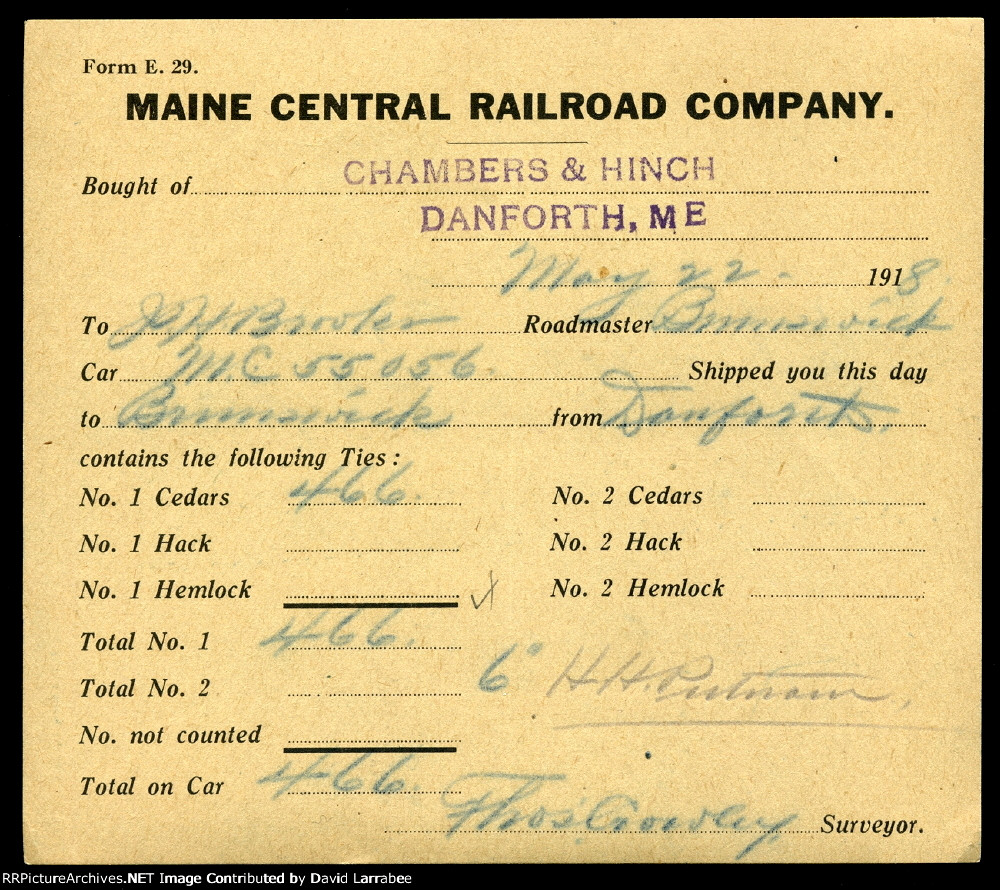 Form E. 29.
MAINE CENTRAL RAILROAD COMPANY.
Bought of CHAMBERS & HINCH
DANFORTH, ME
May 22 - 1918.
To Roadmaster Brunswick
Car M.C. 55056. Shipped you this day
to Brunswick from Danforth.
contains the following Ties:
No. 1 Cedars 466. No. 2 Cedars
No. 1 Hack No. 2 Hack
No. 1 Hemlock No. 2 Hemlock
Total No. 1 466.
Total No. 2 6" H.H. Putnam,
No. not counted
Total on Car 466.
Thos Crowley Surveyor.
RRPictureArchives.NET Image Contributed by David Larrabee